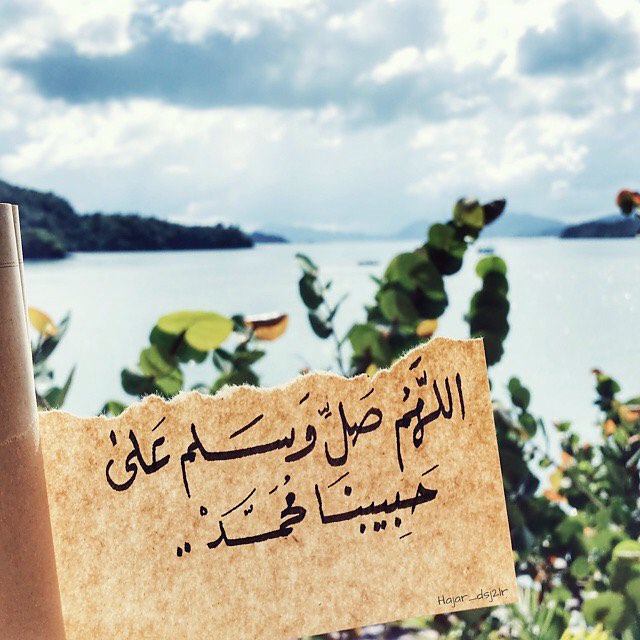 اللَّهُمَ صَلِّ وَسَلم عَلىٰ
حَبِيبنَا مُحَمَّدَْ ..
Hajar_dsj2lr